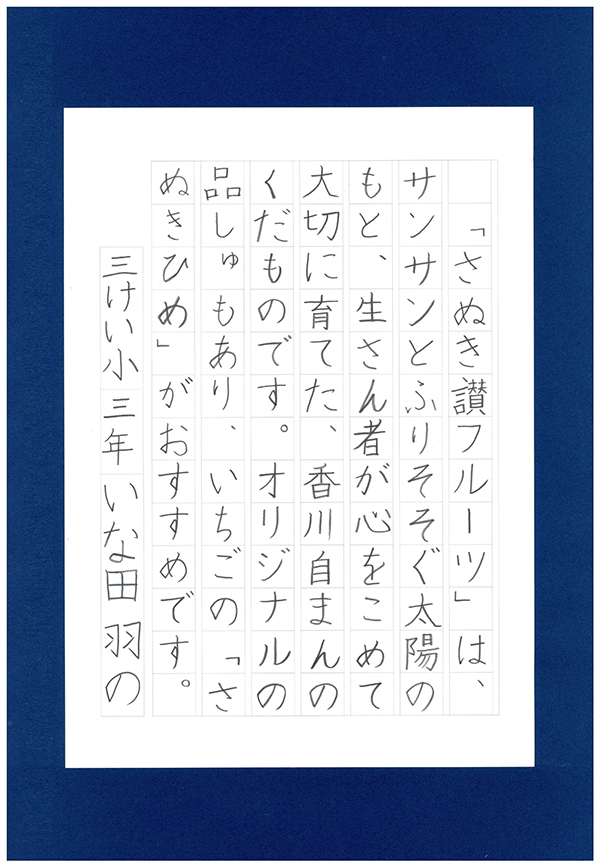 「さぬき讃フルーツ」は、
サンサンとふりそそぐ太陽の
もと、生さん者が心をこめて
大切に育てた、香川自まんの
くだものです。オリジナルの
品しゅもあり、いちごの「さ
ぬきひめ」がおすすめです。
三けい小 三年 いな田 羽の